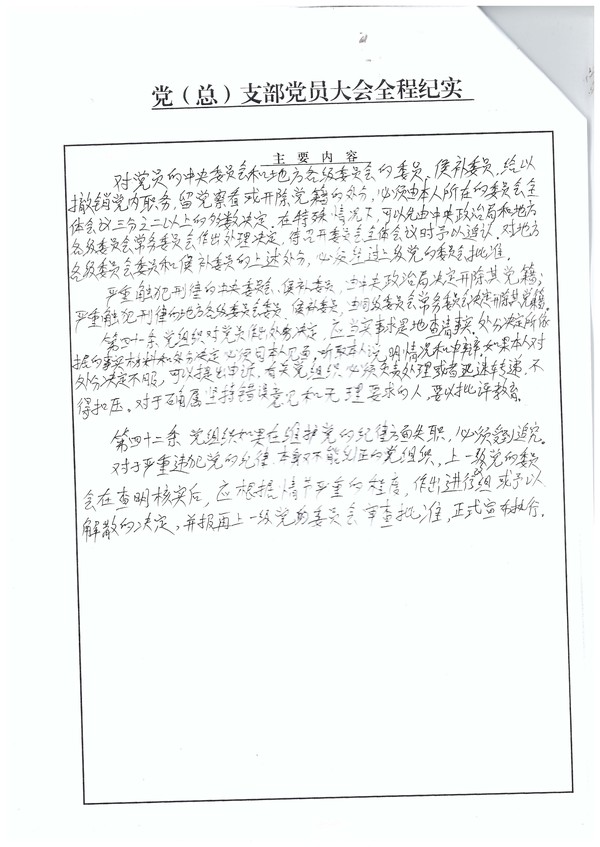 党（总）支部党员大会全程纪实
主 要 内 容
对党员的中央委员会和地方各级委员会的委员、侯补委员，给以
撤销党内职务，留党察看或开除党籍的处分，必须由本人所在的委员会全
体会议三分之二以上的多数决定。在特殊情况下，可以先由中央政治局和地方
各级委员会常务委员会作出处理决定，待召开委员会全体会议时予以追认。对地方
各级委员会委员和侯补委员的上述处分，必须经过上级党的委员会批准。
严重触犯刑律的中央委员会、侯补委员，由中央政治局决定开除其党籍；
严重触犯刑律的地方各级委员会委员、侯补委员，由同级委员会常务委员会决定开除其党籍。
第四十一条 党组织对党员作出处分决定，应当实事求是地查清事实。处分决定所依
据的事实材料和处分决定必须同本人见面，听取本人说明情况和申辩。如果本人对
处分决定不服，可以提出申诉，有关党组织必须负责处理或者迅速转递，不
得扣压。对于确属坚持错误意见和无理要求的人，要以批评教育。
第四十二条 党组织如果在维护党的纪律方面失职，必须受到追究。
对于严重违犯党的纪律、本身又不能纠正的党组织，上一级党的委员
会在查明核实后，应根据情节严重的程度，作出进行改组或予以
解散的决定，并报再上一级党的委员会审查批准，正式宣布执行。